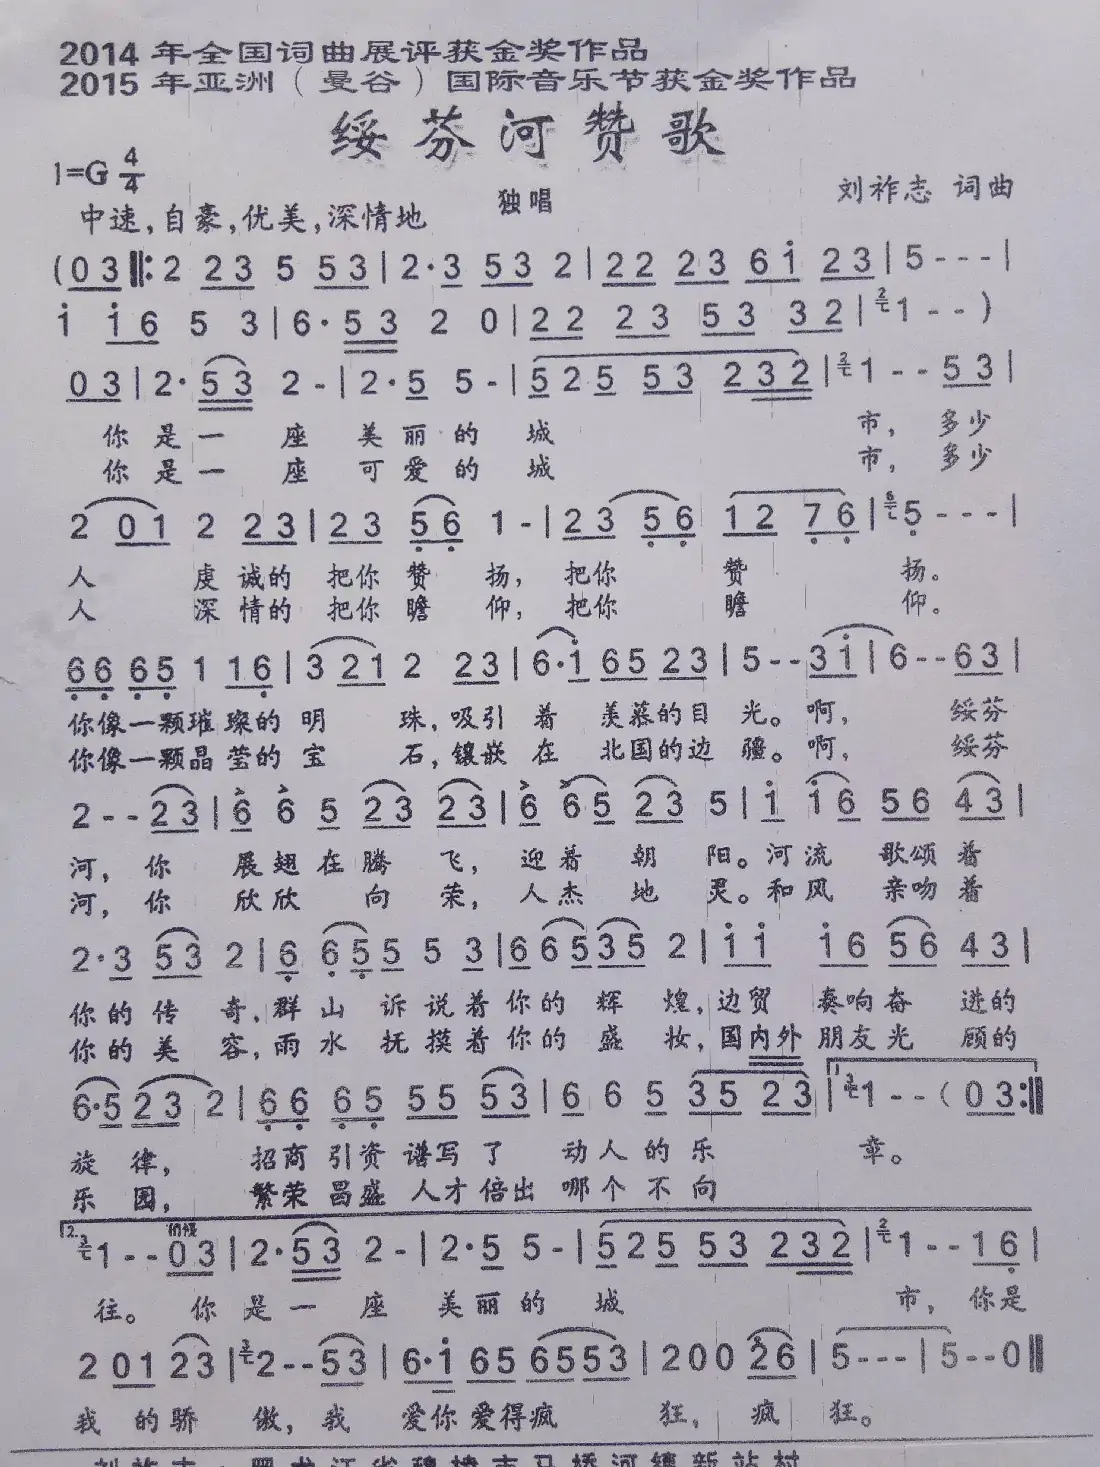 2014 年全国词曲展评获金奖作品
2015 年亚洲（曼谷）国际音乐节获金奖作品
绥芬河赞歌
1=G 4/4
独唱
刘祚志 词曲
中速,自豪,优美,深情地
(0 3 ‖: 2 2 3 5 5 3 | 2·3 5 3 2 | 2 2 2 3 6 i 2 3 | 5 - - - |
i i 6 5 3 | 6·5 3 2 0 | 2 2 2 3 5 3 3 2 | 1 - - )
0 3 | 2·5 3 2 - | 2·5 5 - | 5 2 5 5 3 2 3 2 | 1 - - 5 3 |
你是一座美丽的城市，多少
你是一座可爱的城市，多少
2 0 1 2 2 3 | 2 3 5 6 1 - | 2 3 5 6 1 2 7 6 | 5 - - - |
人虔诚的把你赞扬，把你赞扬。
人深情的把你瞻仰，把你瞻仰。
6 6 6 5 1 1 6 | 3 2 1 2 2 3 | 6·i 6 5 2 3 | 5 - - 3 i | 6 - - 6 3 |
你像一颗璀璨的明珠，吸引着羡慕的目光。啊，绥芬
你像一颗晶莹的宝石，镶嵌在北国的边疆。啊，绥芬
2 - - 2 3 | 6 6 5 2 3 2 3 | 6 6 5 2 3 5 | i i 6 5 6 4 3 |
河，你展翅在腾飞，迎着朝阳。河流歌颂着
河，你欣欣向荣，人杰地灵。和风亲吻着
2·3 5 3 2 | 6 6 5 5 5 3 | 6 6 5 3 5 2 | i i i 6 5 6 4 3 |
你的传奇，群山诉说着你的辉煌，边贸奏响奋进的
你的美容，雨水抚摸着你的盛妆，国内外朋友光顾的
6·5 2 3 2 | 6 6 6 5 5 5 5 3 | 6 6 5 3 5 2 3 | 1. 1 - - ( 0 3 :‖
旋律，招商引资谱写了动人的乐章。
乐园，繁荣昌盛人才倍出哪个不向
2. 1 - - 0 3 | 2·5 3 2 - | 2·5 5 - | 5 2 5 5 3 2 3 2 | 1 - - 1 6 |
往。你是一座美丽的城市，你是
2 0 1 2 3 | 2 - - 5 3 | 6·i 6 5 6 5 5 3 | 2 0 0 2 6 | 5 - - - | 5 - - 0 ‖
我的骄傲，我爱你爱得疯狂，疯狂。